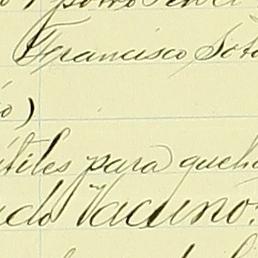 Francisco Soto
io)
útiles para queha
ado Vacuno: